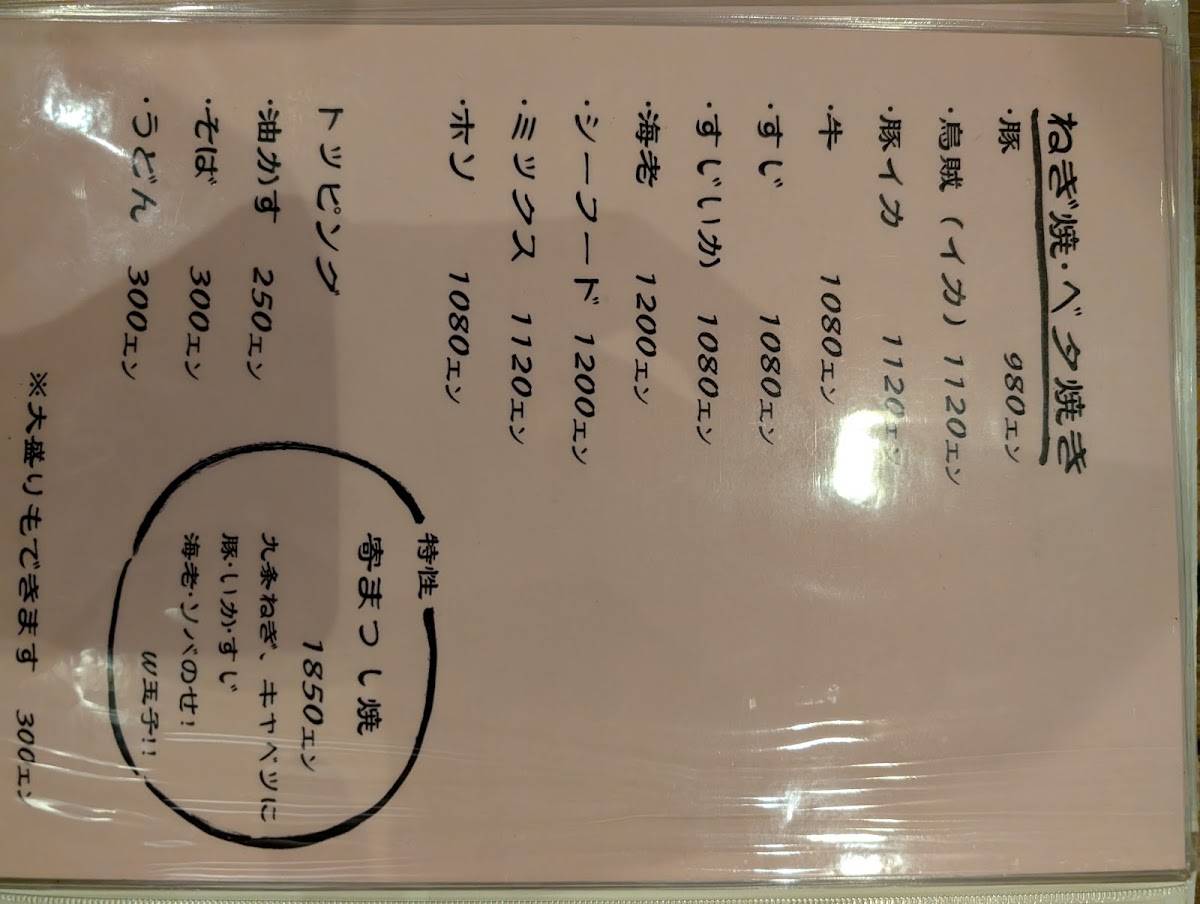 ねぎ焼・ベタ焼き
・豚 980エン
・烏賊（イカ）1120エン
・豚イカ 1120エン
・牛 1080エン
・すじ 1080エン
・すじいか 1080エン
・海老 1200エン
・シーフード 1200エン
・ミックス 1120エン
・ホソ 1080エン
トッピング
・油かす 250エン
・そば 300エン
・うどん 300エン
特性
寄まつし焼
1850エン
九条ねぎ、キャベツに
豚・いか・すじ
海老・ソバのせ!
W玉子!!
※大盛りもできます 300エン